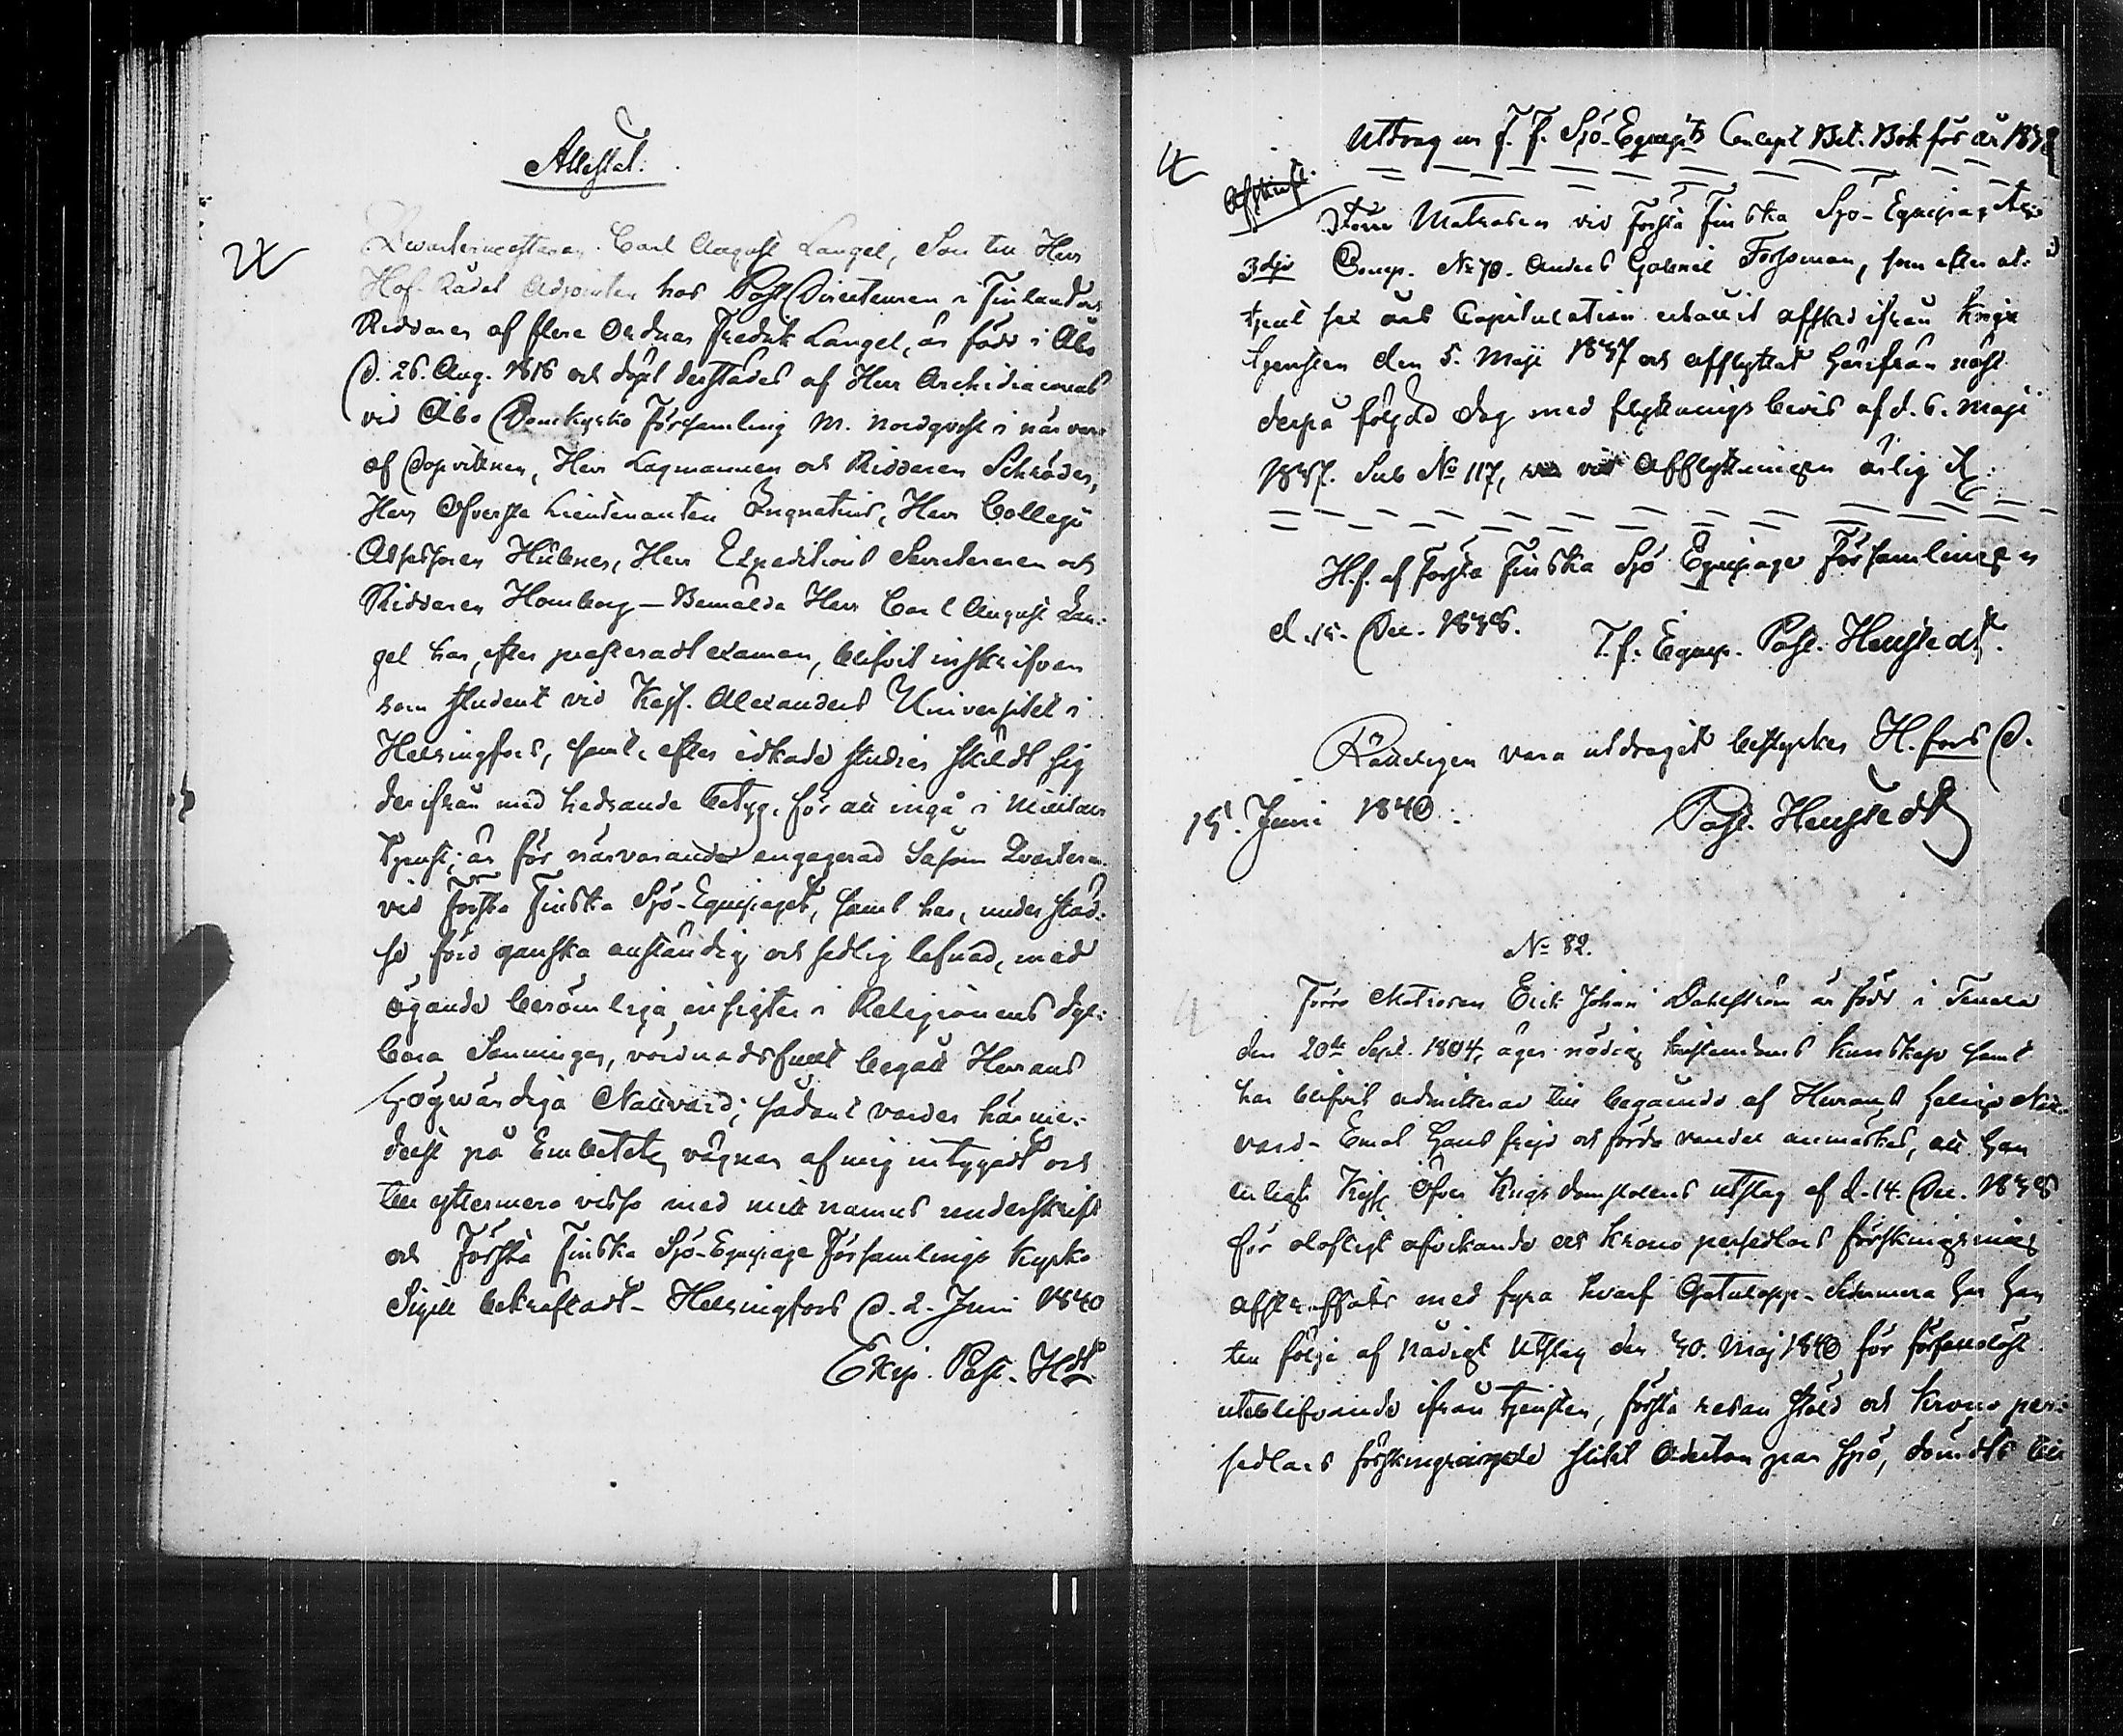 Attestat.
Qvartermästaren Carl August Langel, Son till Herr
Hof-Rådet Adjointen hos Post Directeuren i Finland och
Riddaren af flere Ordnar Fredrik Langel, är född i Åbo
d. 26. Aug. 1816 och döpt derstädes af Herr Archidiaconus
vid Åbo Domkyrko Församling M. Nordqvist i närvaro
af Dopvittnen, Herr Lagmannen och Riddaren Schröder,
Herr Öfverste Lieutenanten Ignatius, Herr Collegii
Assessoren Hübner, Herr Expeditions Secreteraren och
Riddaren Homborg – Bemälda Herr Carl August Lan-
gel har, efter præsteradt examen, blifvit inskrifven
som student vid Kejs. Alexanders Universitet i
Helsingfors, samt, efter idkade studier skildt sig
derifrån med hedrande betyg, för att ingå i Militair
tjenst; är för närvarande engagerad såsom Qvarterm.
vid Första Finska Sjö-Equipaget, samt har, under städ-
se förd ganska anständig och sedlig lefnad, med
ägande berömliga insigter i Religionens dyr-
bara Sanningar, vördnadsfullt begått Herrans
Högwärdiga Nattvard; sådant varder härme-
delst på Embetets vägnar af mig intygadt och
till yttermera visso med mitt namns underskrift
och Första Finska Sjö-Equipage Församlings kyrko
Sigill bekräftadt – Helsingfors d. 2. Juni 1840
Exp. Past. Hdt
Utdrag ur F. F. Sjö-Equip:ts Concept Bet. Bok för år 1838
Afskrift.
Förre Matrosen vid Första Finska Sjö-Equipaget
3dje Comp. No 70. Anders Gabriel Forssman, som efter ut-
tjent sex års Capitulation erhållit afsked ifrån Krigs
tjensten den 5. Maji 1837 och afflyttat härifrån näst
derpå följd dag med flyttnings bevis af d. 6. Maji
1837. Sub No 117, var vid afflyttningen ärlig
H.f. af Första Finska Sjö Equipage Församlingen
d. 15. Dec. 1838.
T. f. Equip. Past. Henstedt.
Rätteligen vara utdraget bestyrker H.fors d.
15. Juni 1840.
Past. Henstedt
No 82.
Förre Matrosen Erik Johan Dahlström är född i Tenala
den 20de Sept. 1804, äger nödig kristendoms kunskap samt
har blifvit admitterad till begående af Herrans Heliga Natt-
vard – Emot Hans frejd och förda vandel anmärkes, att han
enligt Kejs. Öfver Krigs domstolens utslag af d. 14. Dec. 1838
för olofligt afvikande och Krono persedlars förskingring
afstraffats med fyra hvarf Gatulopp – Sedermera har han
till följe af nådigt Utslag den 30. Maj 1840 för förfallolöst
uteblifvande ifrån tjensten, första resan stöld och Krono per-
sedlars förskingrande slitit Aderton par spö, dömdts till